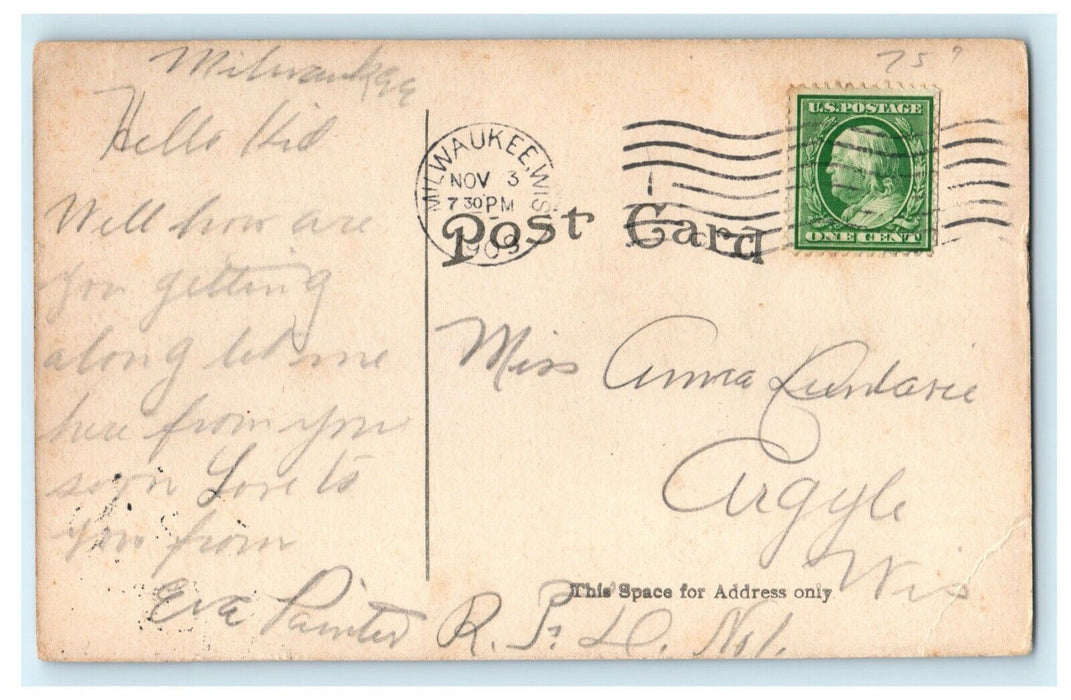 Milwaukee
Hello Kid
Well how are
you getting
along let me
here from you
soon Love to
you from
Eva Painter
75
MILWAUKEE, WIS
NOV 3
7 30 PM
1909
U.S. POSTAGE
ONE CENT
Post Card
Miss Anna
Argyle
Wis
This Space for Address only
R. F. D. No 1.